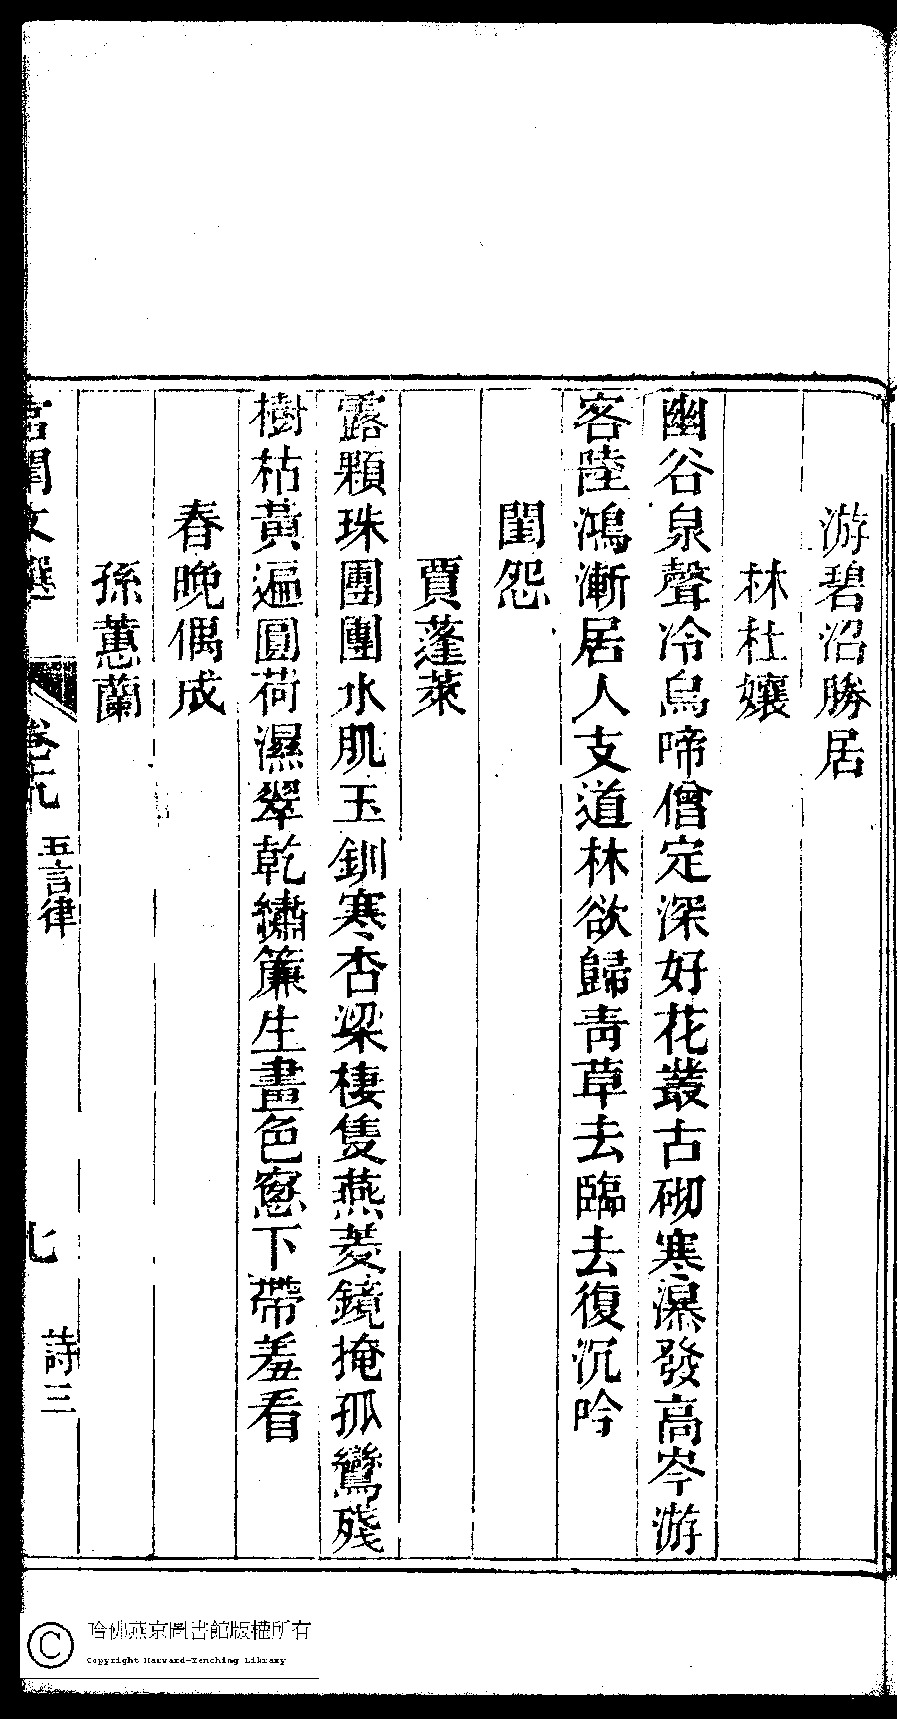 游碧沼勝居
林杜孃
幽谷泉聲冷鳥啼僧定深好花叢古砌寒瀑發高岑游
客陸鴻漸居人支道林欲歸青草去臨去復沉吟
閨怨
賈蓬萊
露顆珠團團水肌玉釧寒杏梁棲隻燕菱鏡掩孤鸞殘
樹枯黃遍圓荷濕翠乾繡簾生畫色窓下帶羞看
春晚偶成
孫蕙蘭
宮閨文選 卷十九 五言律 七 詩三
哈佛燕京圖書館版權所有
Copyright Harvard-Yenching Library